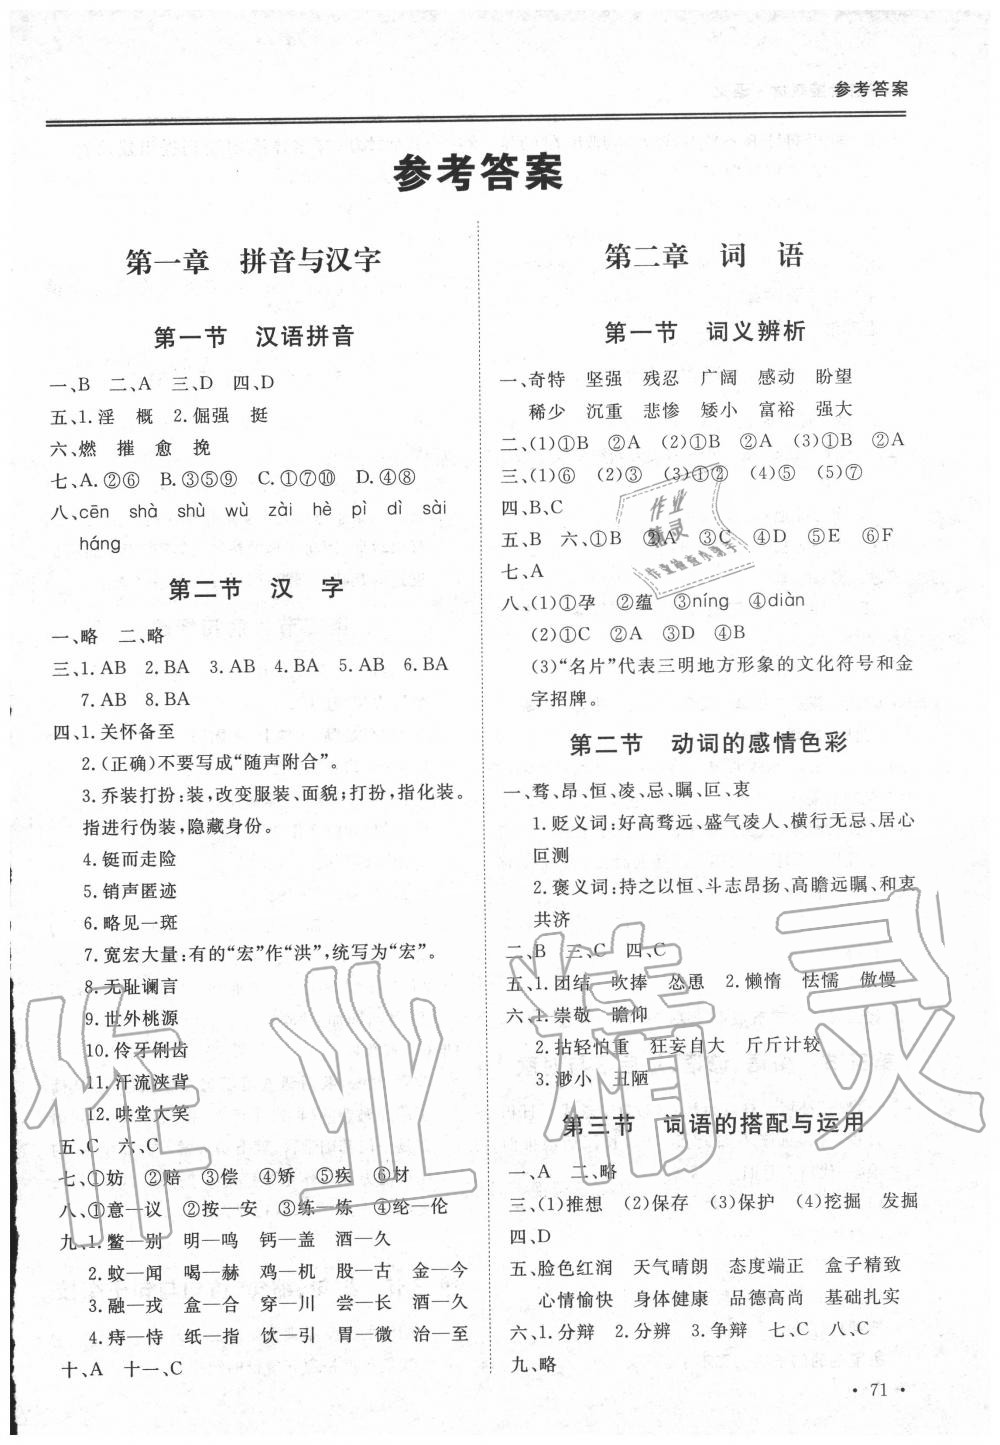 参考答案
参考答案
第一章　拼音与汉字
第一节　汉语拼音
一、B　二、A　三、D　四、D
五、1.淫　概　2.倔强　挺
六、燃　摧　愈　挽
七、A.②⑥　B.③⑤⑨　C.①⑦⑩　D.④⑧
八、cēn　shà　shù　wù　zài　hè　pì　dì　sài
háng
第二节　汉　字
一、略　二、略
三、1. AB　2. BA　3. AB　4. BA　5. AB　6. BA
7. AB　8. BA
四、1.关怀备至
2.(正确)不要写成“随声附合”。
3.乔装打扮:装,改变服装、面貌;打扮,指化装。
指进行伪装,隐藏身份。
4.铤而走险
5.销声匿迹
6.略见一斑
7.宽宏大量:有的“宏”作“洪”,统写为“宏”。
8.无耻谰言
9.世外桃源
10.伶牙俐齿
11.汗流浃背
12.哄堂大笑
五、C　六、C
七、①妨　②赔　③偿　④矫　⑤疾　⑥材
八、①意—议　②按—安　③练—炼　④纶—伦
九、1.鳖—别　明—鸣　钙—盖　酒—久
2.蚊—闻　喝—赫　鸡—机　股—古　金—今
3.融—戎　盒—合　穿—川　尝—长　酒—久
4.痔—恃　纸—指　饮—引　胃—微　治—至
十、A　十一、C
第二章　词　语
第一节　词义辨析
一、奇特　坚强　残忍　广阔　感动　盼望
稀少　沉重　悲惨　矮小　富裕　强大
二、(1)①B　②A　(2)①B　②A　(3)①B　②A
三、(1)⑥　(2)③　(3)①②　(4)⑤　(5)⑦
四、B、C
五、B　六、①B　②A　③C　④D　⑤E　⑥F
七、A
八、(1)①孕　②蕴　③níng　④diàn
(2)①C　②A　③D　④B
(3)“名片”代表三明地方形象的文化符号和金
字招牌。
第二节　动词的感情色彩
一、骛、昂、恒、凌、忌、瞩、叵、衷
1.贬义词:好高骛远、盛气凌人、横行无忌、居心
叵测
2.褒义词:持之以恒、斗志昂扬、高瞻远瞩、和衷
共济
二、B　三、C　四、C
五、1.团结　吹捧　怂恿　2.懒惰　怯懦　傲慢
六、1.崇敬　瞻仰
2.拈轻怕重　狂妄自大　斤斤计较
3.渺小　丑陋
第三节　词语的搭配与运用
一、A　二、略
三、(1)推想　(2)保存　(3)保护　(4)挖掘　发掘
四、D
五、脸色红润　天气晴朗　态度端正　盒子精致
心情愉快　身体健康　品德高尚　基础扎实
六、1.分辩　2.分辨　3.争辩　七、C　八、C
九、略
作业
精灵
作业检查小助手
作业精灵
· 71 ·